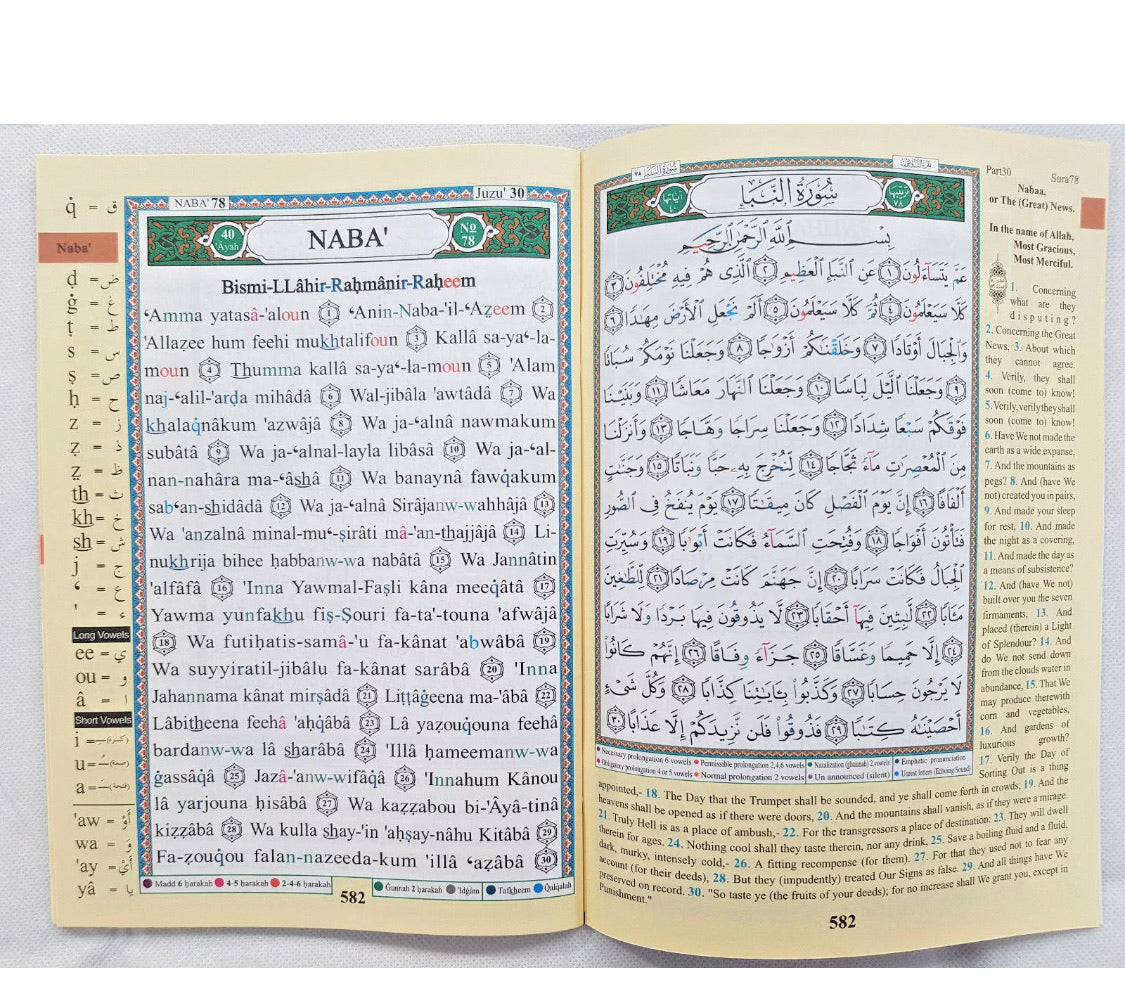 q̇ = ق
Naba'
ḍ = ض
ġ = غ
ṭ = ط
s = س
ṣ = ص
ḥ = ح
z = ز
ẓ = ذ
ẓ = ظ
th = ث
kh = خ
sh = ش
j = ج
ʻ = ع
' = ء
Long Vowels
ee = ي
ou = و
â = ا
Short Vowels
i = (كسرة)
u = (ضمة)
a = (فتحة)
'aw = أَوْ
wa = وَ
'ay = أَيْ
yâ = يا
NABA' 78
Juzu' 30
40 'Ayah
NABA'
No 78
Bismi-LLâhir-Raḥmânir-Raḥeem
ʻAmma yatasâ-'aloun 1 ʻAnin-Naba-'il-ʻAẓeem 2
'Allaẓee hum feehi mukhtalifoun 3 Kallâ sa-yaʻ-la-
moun 4 Thumma kallâ sa-yaʻ-la-moun 5 'Alam
naj-ʻalil-'arḍa mihâdâ 6 Wal-jibâla 'awtâdâ 7 Wa
khalaq̇nâkum 'azwâjâ 8 Wa ja-ʻalnâ nawmakum
subâtâ 9 Wa ja-ʻalnal-layla libâsâ 10 Wa ja-ʻal-
nan-nahâra ma-ʻâshâ 11 Wa banaynâ fawq̇akum
sabʻan-shidâdâ 12 Wa ja-ʻalnâ Sirâjanw-wahhâjâ 13
Wa 'anzalnâ minal-muʻ-ṣirâti mâ-'an-thajjâjâ 14 Li-
nukhrija bihee ḥabbanw-wa nabâtâ 15 Wa Jannâtin
'alfâfâ 16 'Inna Yawmal-Faṣli kâna meeq̇âtâ 17
Yawma yunfakhu fiṣ-Ṣouri fa-ta'-touna 'afwâjâ
18 Wa futiḥatis-samâ-'u fa-kânat 'abwâbâ 19
Wa suyyiratil-jibâlu fa-kânat sarâbâ 20 'Inna
Jahannama kânat mirṣâdâ 21 Liṭṭâġeena ma-'âbâ 22
Lâbitheena feehâ 'aḥq̇âbâ 23 Lâ yaẓouq̇ouna feehâ
bardanw-wa lâ sharâbâ 24 'Illâ ḥameemanw-wa
ġassâq̇â 25 Jazâ-'anw-wifâq̇â 26 'Innahum Kânou
lâ yarjouna ḥisâbâ 27 Wa kaẓẓabou bi-'Âyâ-tinâ
kiẓẓâbâ 28 Wa kulla shay-'in 'aḥṣay-nâhu Kitâbâ 29
Fa-ẓouq̇ou falan-nazeeda-kum 'illâ ʻaẓâbâ 30
Madd 6 ḥarakah 4-5 ḥarakah 2-4-6 ḥarakah Ġunnah 2 ḥarakah 'Idġâm Tafkheem Q̇ulq̇alah
582
سُورَةُ النَّبَإِ ٧٨
سُورَةُ النَّبَإِ
آياتها ٤٠
ترتيبها ٧٨
بِسْمِ اللَّهِ الرَّحْمَٰنِ الرَّحِيمِ
عَمَّ يَتَسَآءَلُونَ ١ عَنِ النَّبَإِ الْعَظِيمِ ٢ الَّذِى هُمْ فِيهِ مُخْتَلِفُونَ ٣
كَلَّا سَيَعْلَمُونَ ٤ ثُمَّ كَلَّا سَيَعْلَمُونَ ٥ أَلَمْ نَجْعَلِ الْأَرْضَ مِهَٰدًا ٦
وَالْجِبَالَ أَوْتَادًا ٧ وَخَلَقْنَٰكُمْ أَزْوَٰجًا ٨ وَجَعَلْنَا نَوْمَكُمْ سُبَاتًا
٩ وَجَعَلْنَا الَّيْلَ لِبَاسًا ١٠ وَجَعَلْنَا النَّهَارَ مَعَاشًا ١١ وَبَنَيْنَا
فَوْقَكُمْ سَبْعًا شِدَادًا ١٢ وَجَعَلْنَا سِرَاجًا وَهَّاجًا ١٣ وَأَنزَلْنَا
مِنَ الْمُعْصِرَٰتِ مَآءً ثَجَّاجًا ١٤ لِّنُخْرِجَ بِهِۦ حَبًّا وَنَبَاتًا ١٥ وَجَنَّٰتٍ
أَلْفَافًا ١٦ إِنَّ يَوْمَ الْفَصْلِ كَانَ مِيقَٰتًا ١٧ يَوْمَ يُنفَخُ فِى الصُّورِ
فَتَأْتُونَ أَفْوَاجًا ١٨ وَفُتِحَتِ السَّمَآءُ فَكَانَتْ أَبْوَٰبًا ١٩ وَسُيِّرَتِ
الْجِبَالُ فَكَانَتْ سَرَابًا ٢٠ إِنَّ جَهَنَّمَ كَانَتْ مِرْصَادًا ٢١ لِّلطَّٰغِينَ
مَـَٔابًا ٢٢ لَّٰبِثِينَ فِيهَآ أَحْقَابًا ٢٣ لَّا يَذُوقُونَ فِيهَا بَرْدًا وَلَا شَرَابًا
٢٤ إِلَّا حَمِيمًا وَغَسَّاقًا ٢٥ جَزَآءً وِفَاقًا ٢٦ إِنَّهُمْ كَانُوا۟
لَا يَرْجُونَ حِسَابًا ٢٧ وَكَذَّبُوا۟ بِـَٔايَٰتِنَا كِذَّابًا ٢٨ وَكُلَّ شَىْءٍ
أَحْصَيْنَٰهُ كِتَٰبًا ٢٩ فَذُوقُوا۟ فَلَن نَّزِيدَكُمْ إِلَّا عَذَابًا ٣٠
Necessary prolongation 6 vowels Permissible prolongation 2,4,6 vowels Nazalization (ghunnah) 2 vowels Emphatic pronunciation
Obligatory prolongation 4 or 5 vowels Normal prolongation 2 vowels Un announced (silent) Unrest letters (Echoing Sound)
Part30
Sura78
Nabaa,
or The (Great) News.
In the name of Allah,
Most Gracious,
Most Merciful.
1. Concerning
what are they
disputing?
2. Concerning the Great
News, 3. About which
they cannot agree.
4. Verily, they shall
soon (come to) know!
5. Verily, verily they shall
soon (come to) know!
6. Have We not made the
earth as a wide expanse,
7. And the mountains as
pegs? 8. And (have We
not) created you in pairs,
9. And made your sleep
for rest, 10. And made
the night as a covering,
11. And made the day as
a means of subsistence?
12. And (have We not)
built over you the seven
firmaments, 13. And
placed (therein) a Light
of Splendour? 14. And
do We not send down
from the clouds water in
abundance, 15. That We
may produce therewith
corn and vegetables,
16. And gardens of
luxurious growth?
17. Verily the Day of
Sorting Out is a thing
appointed,- 18. The Day that the Trumpet shall be sounded, and ye shall come forth in crowds; 19. And the
heavens shall be opened as if there were doors, 20. And the mountains shall vanish, as if they were a mirage.
21. Truly Hell is as a place of ambush,- 22. For the transgressors a place of destination: 23. They will dwell
therein for ages. 24. Nothing cool shall they taste therein, nor any drink, 25. Save a boiling fluid and a fluid,
dark, murky, intensely cold,- 26. A fitting recompense (for them). 27. For that they used not to fear any
account (for their deeds), 28. But they (impudently) treated Our Signs as false. 29. And all things have We
preserved on record. 30. "So taste ye (the fruits of your deeds); for no increase shall We grant you, except in
Punishment."
582